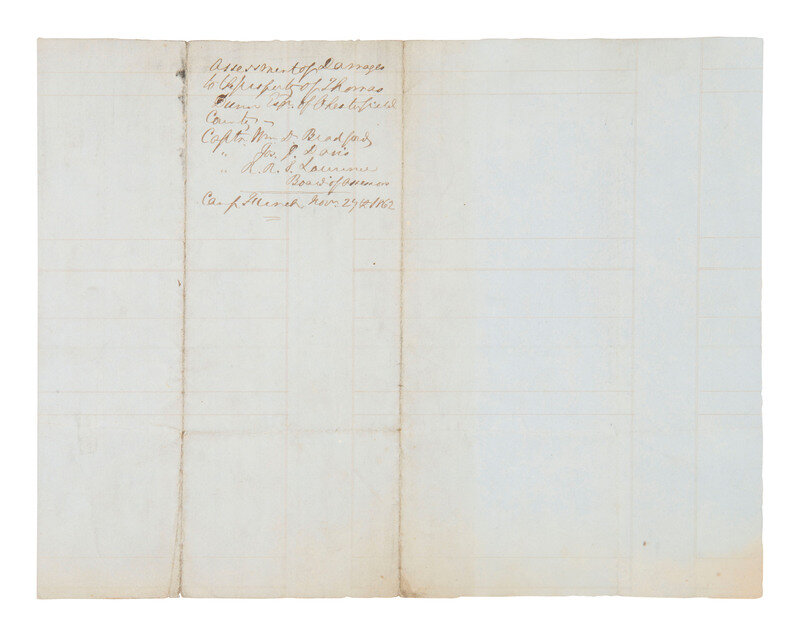 Assessment of Damages
to property of Thomas
Esqr. of Chesterfield
County —
Captn. Wm D. Bradford
" Jos. J. Davis
" R. R. S. Lawrence
Board of Assessors
Camp Nov. 27th 1862